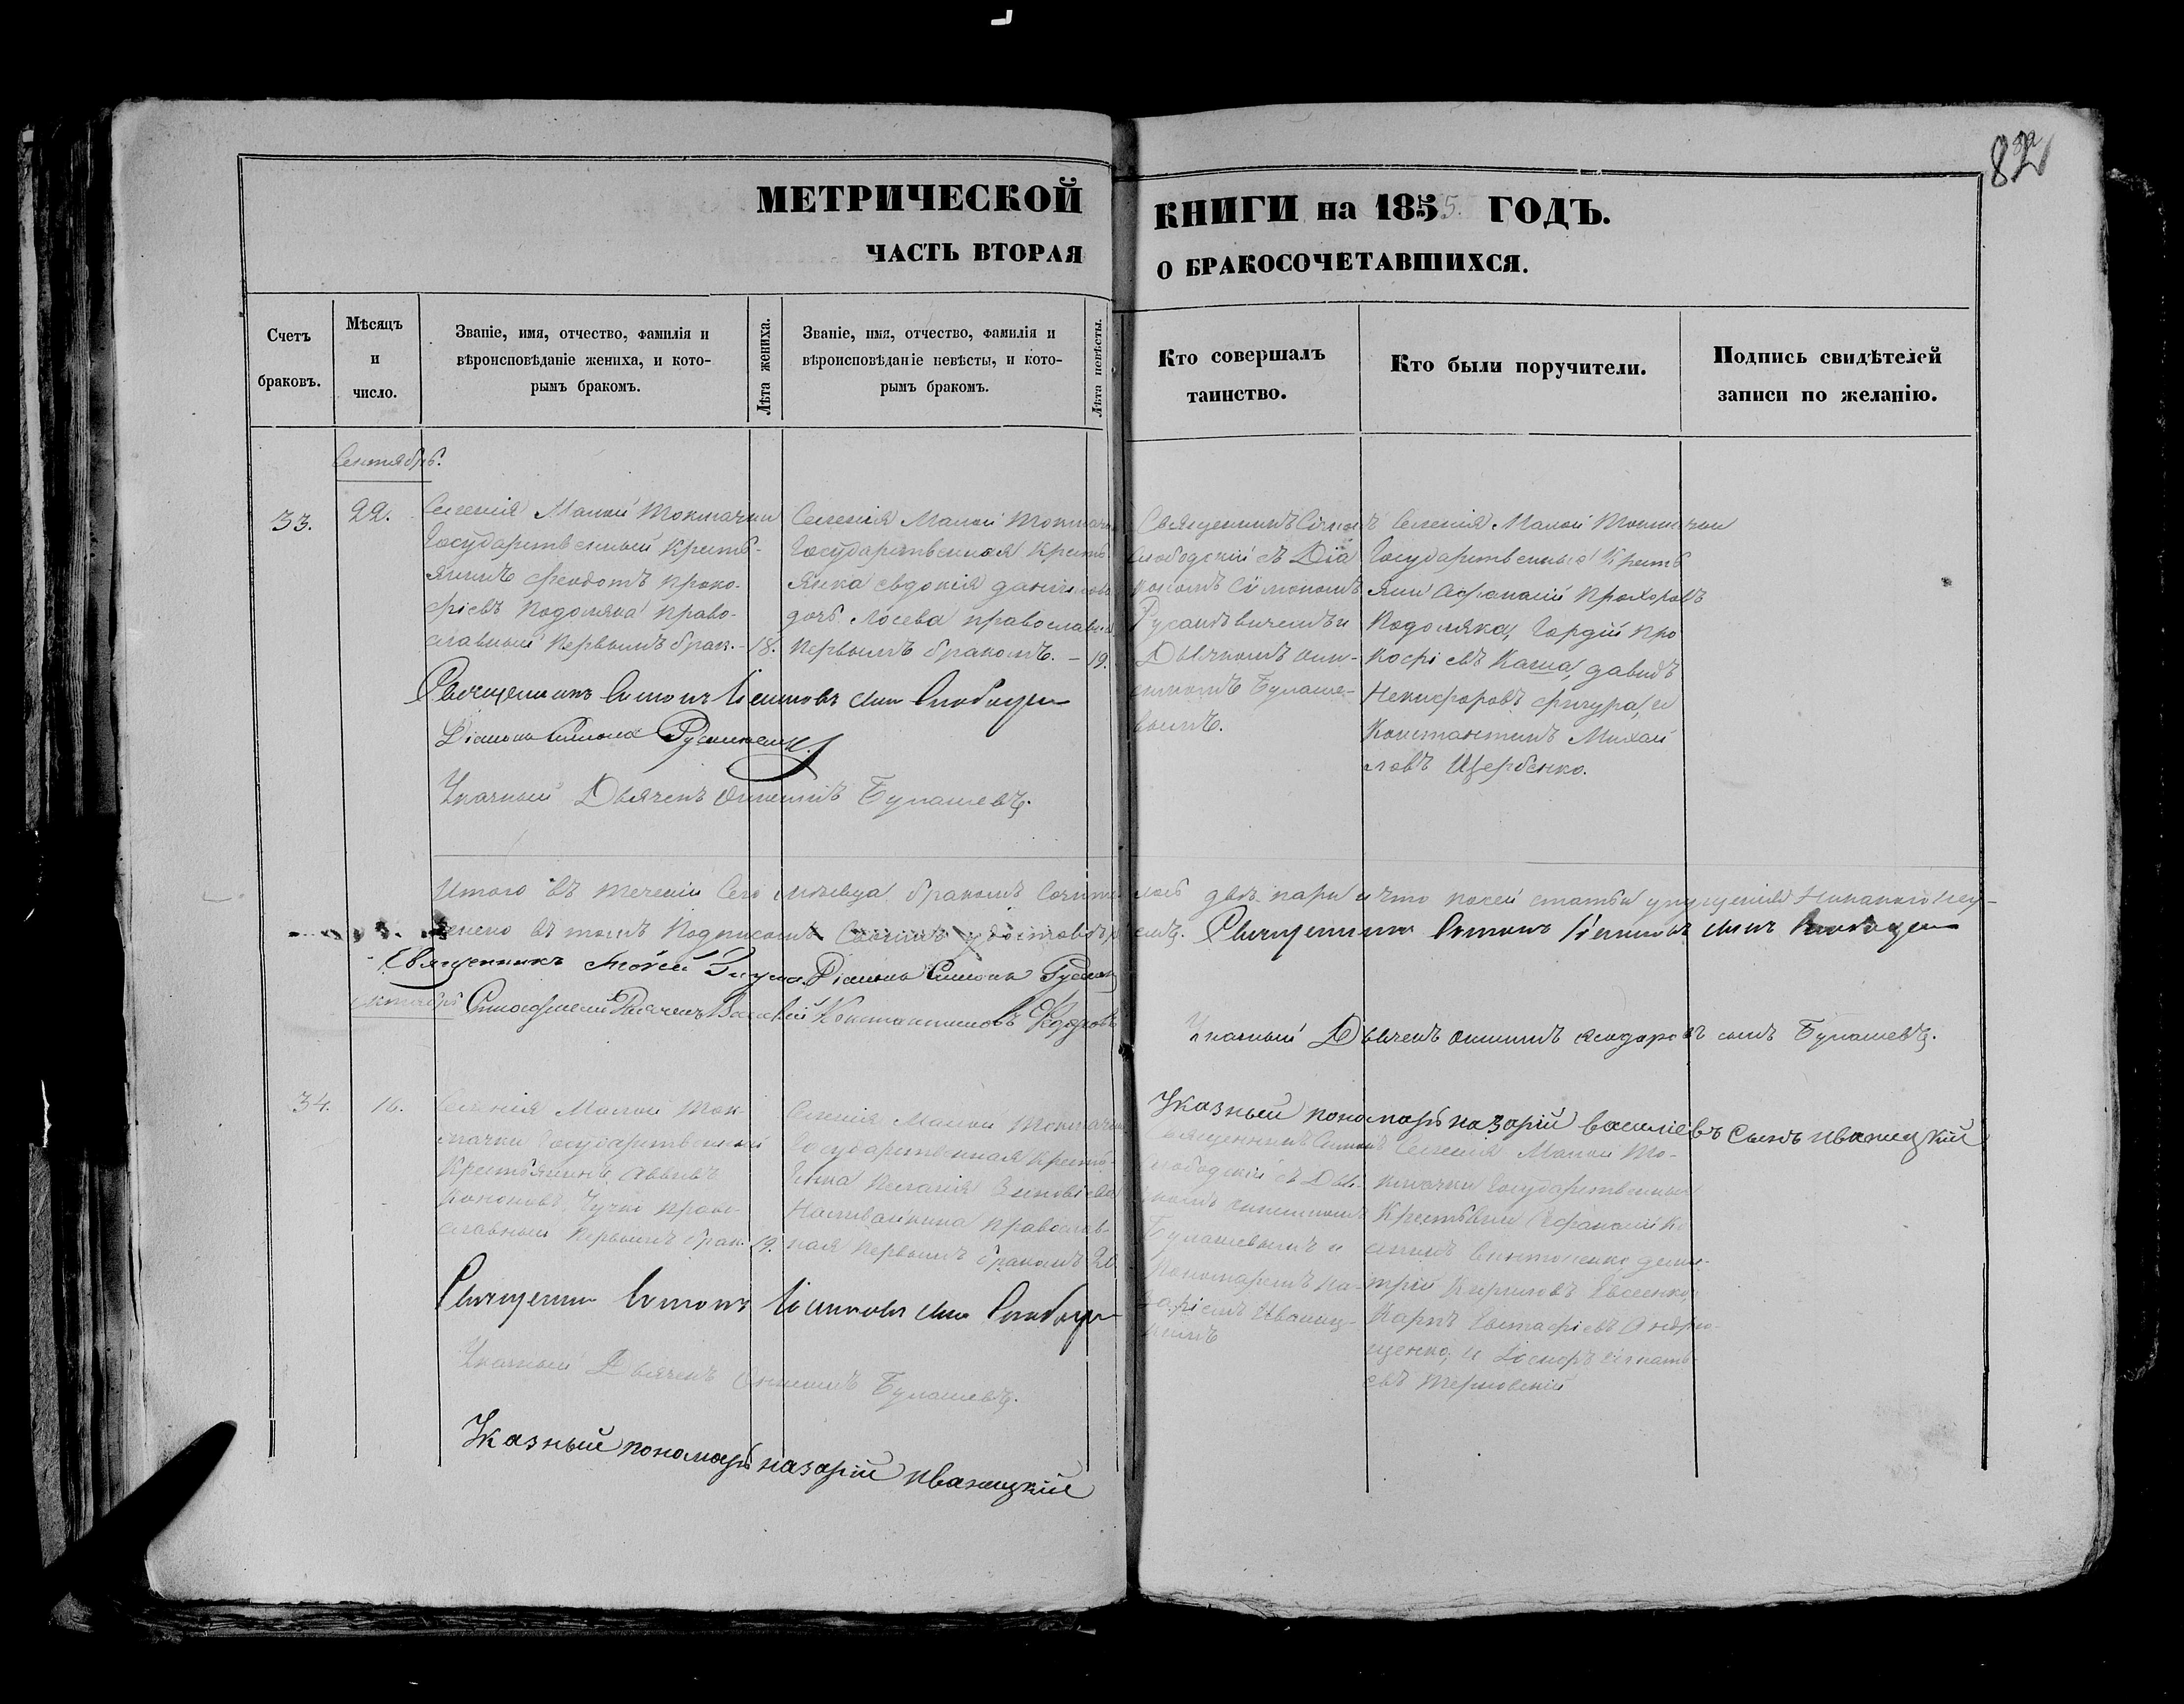 82
МЕТРИЧЕСКОЙ КНИГИ на 1855. ГОДЪ.
ЧАСТЬ ВТОРАЯ О БРАКОСОЧЕТАВШИХСЯ.
Счетъ
браковъ.
Мѣсяцъ
и
число.
Званіе, имя, отчество, фамилія и
вѣроисповѣданіе жениха, и кото-
рымъ бракомъ.
Лѣта жениха.
Званіе, имя, отчество, фамилія и
вѣроисповѣданіе невѣсты, и кото-
рымъ бракомъ.
Лѣта невѣсты.
Кто совершалъ
таинство.
Кто были поручители.
Подпись свидѣтелей
записи по желанію.
Сентябрь.
33.
22.
Селенія Малой Токмачки
Государственный Кресть-
янинъ Феодотъ Проко-
фіевъ Подоляка Право-
славный Первымъ брак. - 18.
Селенія Малой Токмачки
Государственная Кресть
янка Евдокія Данилова
дочь Лосева православная
Первымъ бракомъ. - 19.
Священникъ Симонъ
Слободскій съ Діа
кономъ Симономъ
Дьячкомъ
Булаше-
вымъ.
Селенія Малой Токмачки
Государственные Кресть
яни Афанасій Прохоровъ
Подоляка, Гордій Про
кофіевъ Каша, давидъ
Никифоровъ Фигура, и
Константинъ Михай
ловъ Щербенко.
Священникъ Симонъ сынъ
Діаконъ Симонъ
Указный Дьячекъ Булашевъ.
Итого въ теченіи сего мѣсяца бракомъ двѣ пары и что по сей статьи упущенія никакого неу-
чинено въ томъ Подписомъ Своимъ удостовѣряемъ. Священникъ Симонъ сынъ
Священникъ Діаконъ Симонъ
Октябрь
Дьячекъ Василій Константиновъ
Указный Дьячекъ сынъ Булашевъ.
Указный пономарь назарій василіевъ сынъ иваницкій
34.
16.
Селенія Малой Ток
мачки Государственный
Крестьянинъ
Кононовъ Чучко право-
славный Первымъ брак. 19.
Селенія Малой Токмачки
Государственная Кресть-
янка Пелагія Зиновіева
Наливайкина православ-
ная Первымъ бракомъ 20.
Священникъ Симонъ
Слободскій съ Дья-
Булашевымъ и
Пономаремъ На-
заріемъ Иваниц-
кимъ
Селенія Малой То-
кмачки Государственные
Крестьяни Афанасій
дими-
трій Кириловъ Евсеенко,
Карпъ Евстафіевъ Андрю-
щенко, и
евъ Терновскій
Священникъ Симонъ сынъ
Указный Дьячекъ Булашевъ.
Указный пономарь назарій иваницкій